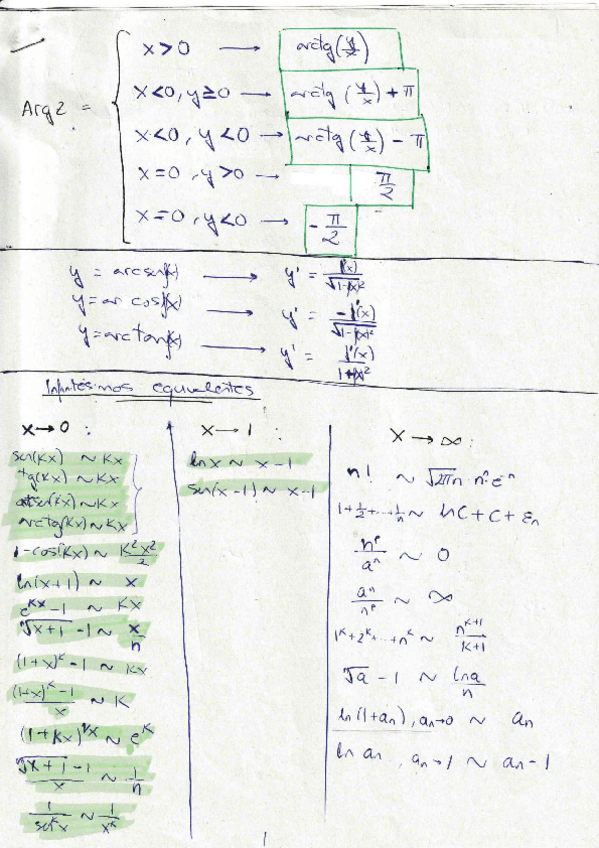 Arg z =
x>0 → arctg(y/x)
x<0, y≥0 → arctg (y/x) + π
x<0, y<0 → arctg (y/x) - π
x=0, y>0 → π/2
x=0, y<0 → -π/2
y = arcsenf(x) → y' = f'(x)/√(1-f(x)²)
y = arcosf(x) → y' = -f'(x)/√(1-f(x)²)
y = arctanf(x) → y' = f'(x)/(1+f(x)²)
Infinitésimos equivalentes
x→0 :
sen(Kx) ~ Kx
tg(Kx) ~ Kx
arcsen(Kx) ~ Kx
arctg(Kx) ~ Kx
1-cos(Kx) ~ K²x²/2
ln(x+1) ~ x
e^Kx -1 ~ Kx
ⁿ√(x+1) -1 ~ x/n
(1+x)^K -1 ~ Kx
((1+x)^K -1)/x ~ K
(1+Kx)^(1/x) ~ e^K
(ⁿ√(x+1) -1)/x ~ 1/n
1/sen^K x ~ 1/x^K
x→1 :
ln x ~ x-1
sen(x-1) ~ x-1
x→∞ :
n! ~ √(2πn) n^n e^-n
1+1/2+...+1/n ~ ln C + C + εn
n^p/a^n ~ 0
a^n/n^p ~ ∞
1^K+2^K+...+n^K ~ n^(K+1)/(K+1)
ⁿ√a - 1 ~ ln a/n
ln(1+an), an→0 ~ an
ln an, an→1 ~ an-1
1